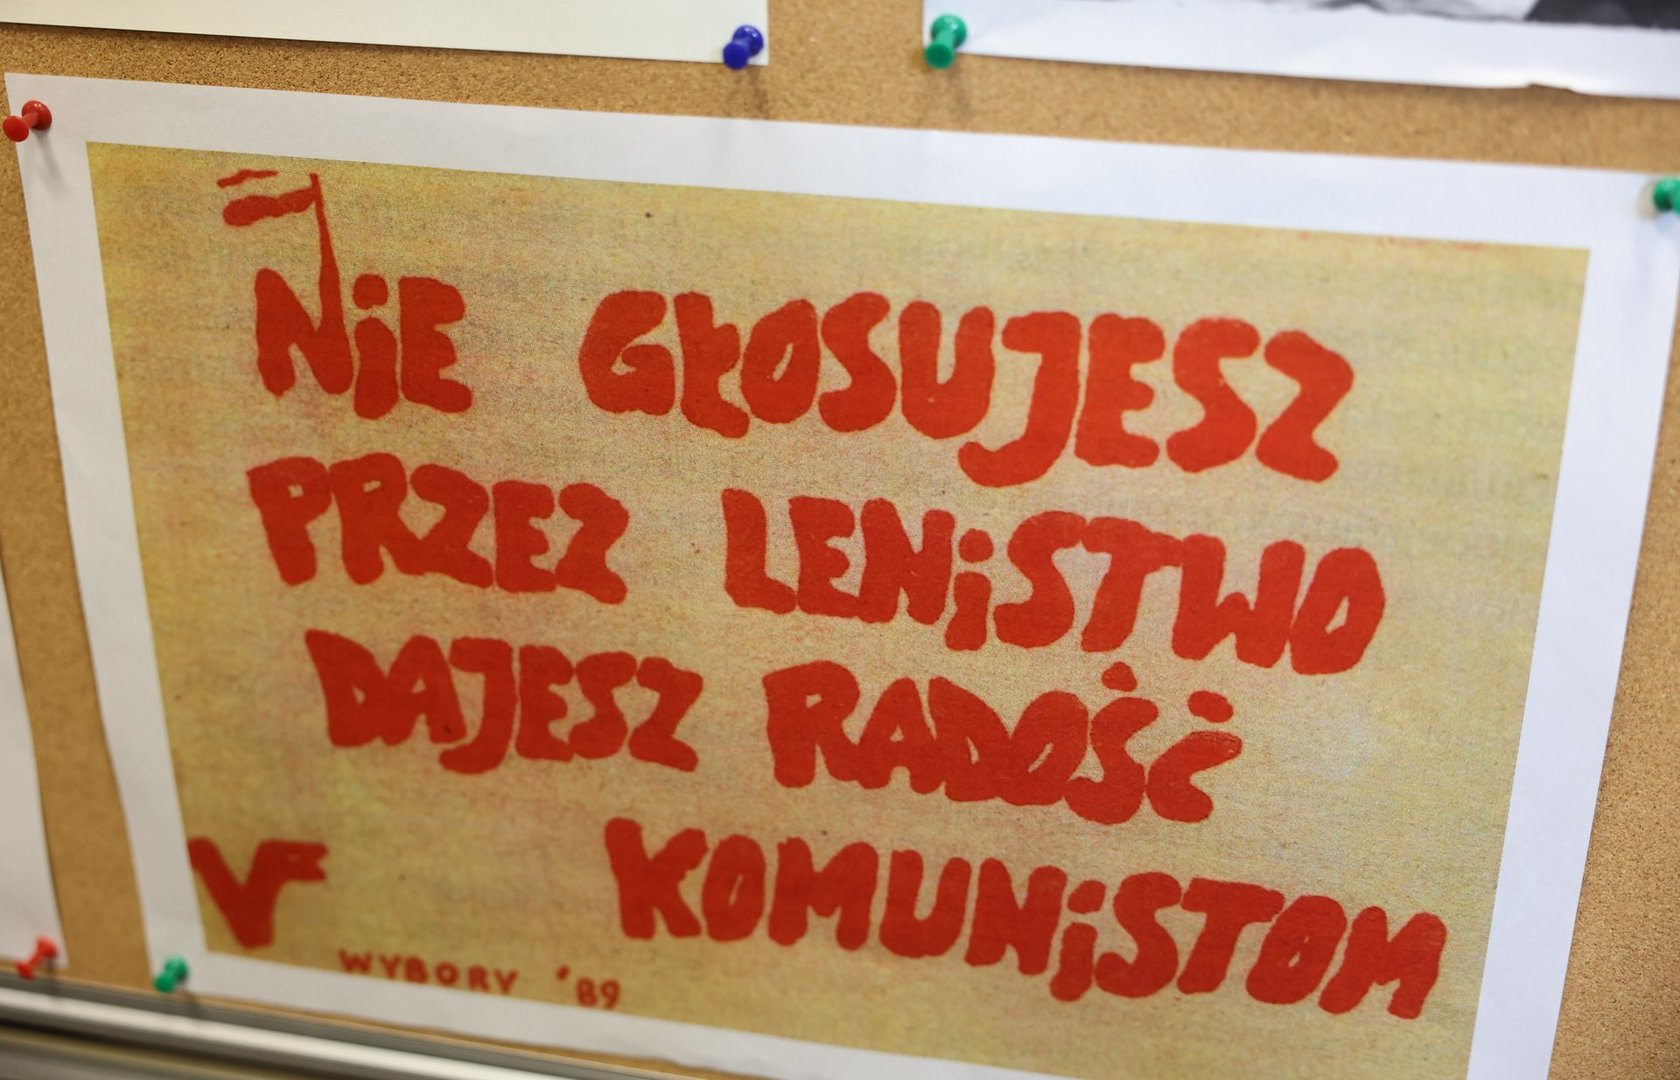 NiE GŁOSUJESZ
PRZEZ LENiSTWO
DAJESZ RADOŚĆ
KOMUNiSTOM
WYBORY '89